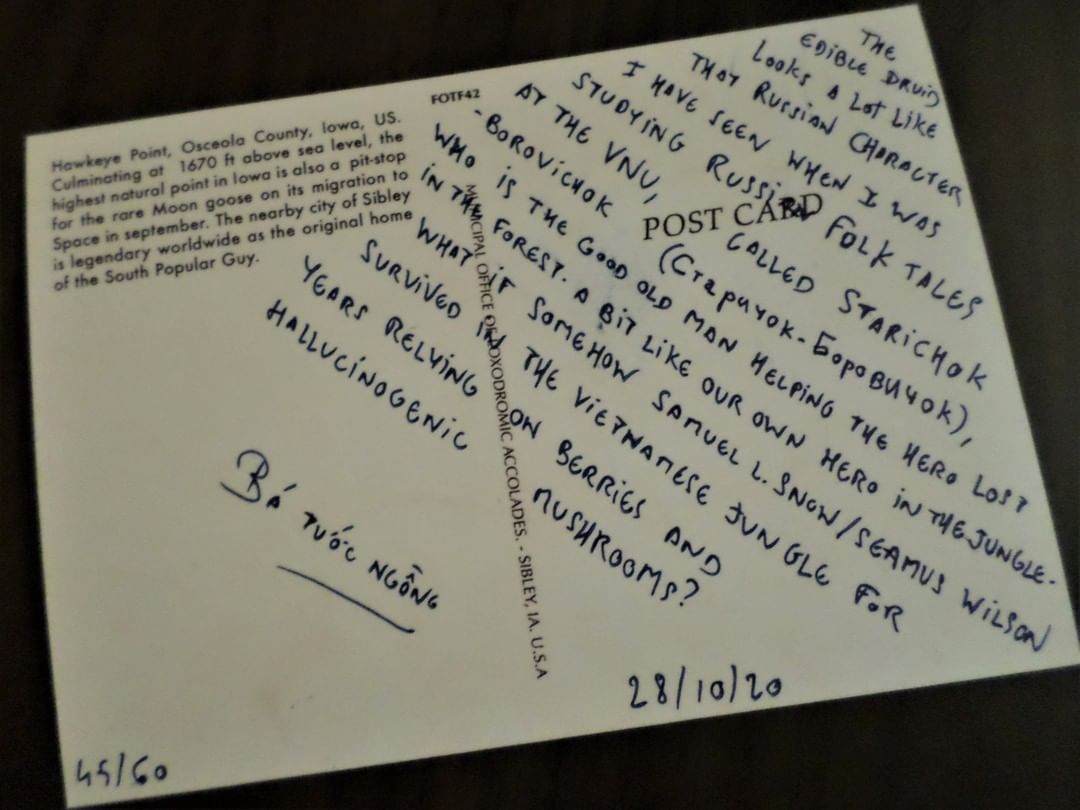 Hawkeye Point, Osceola County, Iowa, US.
Culminating at 1670 ft above sea level, the
highest natural point in Iowa is also a pit-stop
for the rare Moon goose on its migration to
Space in september. The nearby city of Sibley
is legendary worldwide as the original home
of the South Popular Guy.
FOTF42
POST CARD
MUNICIPAL OFFICE OF LOXODROMIC ACCOLADES. - SIBLEY, IA. U.S.A
THE
EDIBLE DRUID
LOOKS A LOT LIKE
THAT RUSSIAN CHARACTER
I HAVE SEEN WHEN I WAS
STUDYING RUSSIAN FOLK TALES
AT THE VNU, CALLED STARICHOK
-BOROVICHOK (Старичок-Боровичок),
WHO IS THE GOOD OLD MAN HELPING THE HERO LOST
IN THE FOREST. A BIT LIKE OUR OWN HERO IN THE JUNGLE.
WHAT IF SOMEHOW SAMUEL L. SNOW/SEAMUS WILSON
SURVIVED IN THE VIETNAMESE JUNGLE FOR
YEARS RELYING ON BERRIES AND
HALLUCINOGENIC MUSHROOMS?
BÁ TƯỚC NGỖNG
28/10/20
45/60